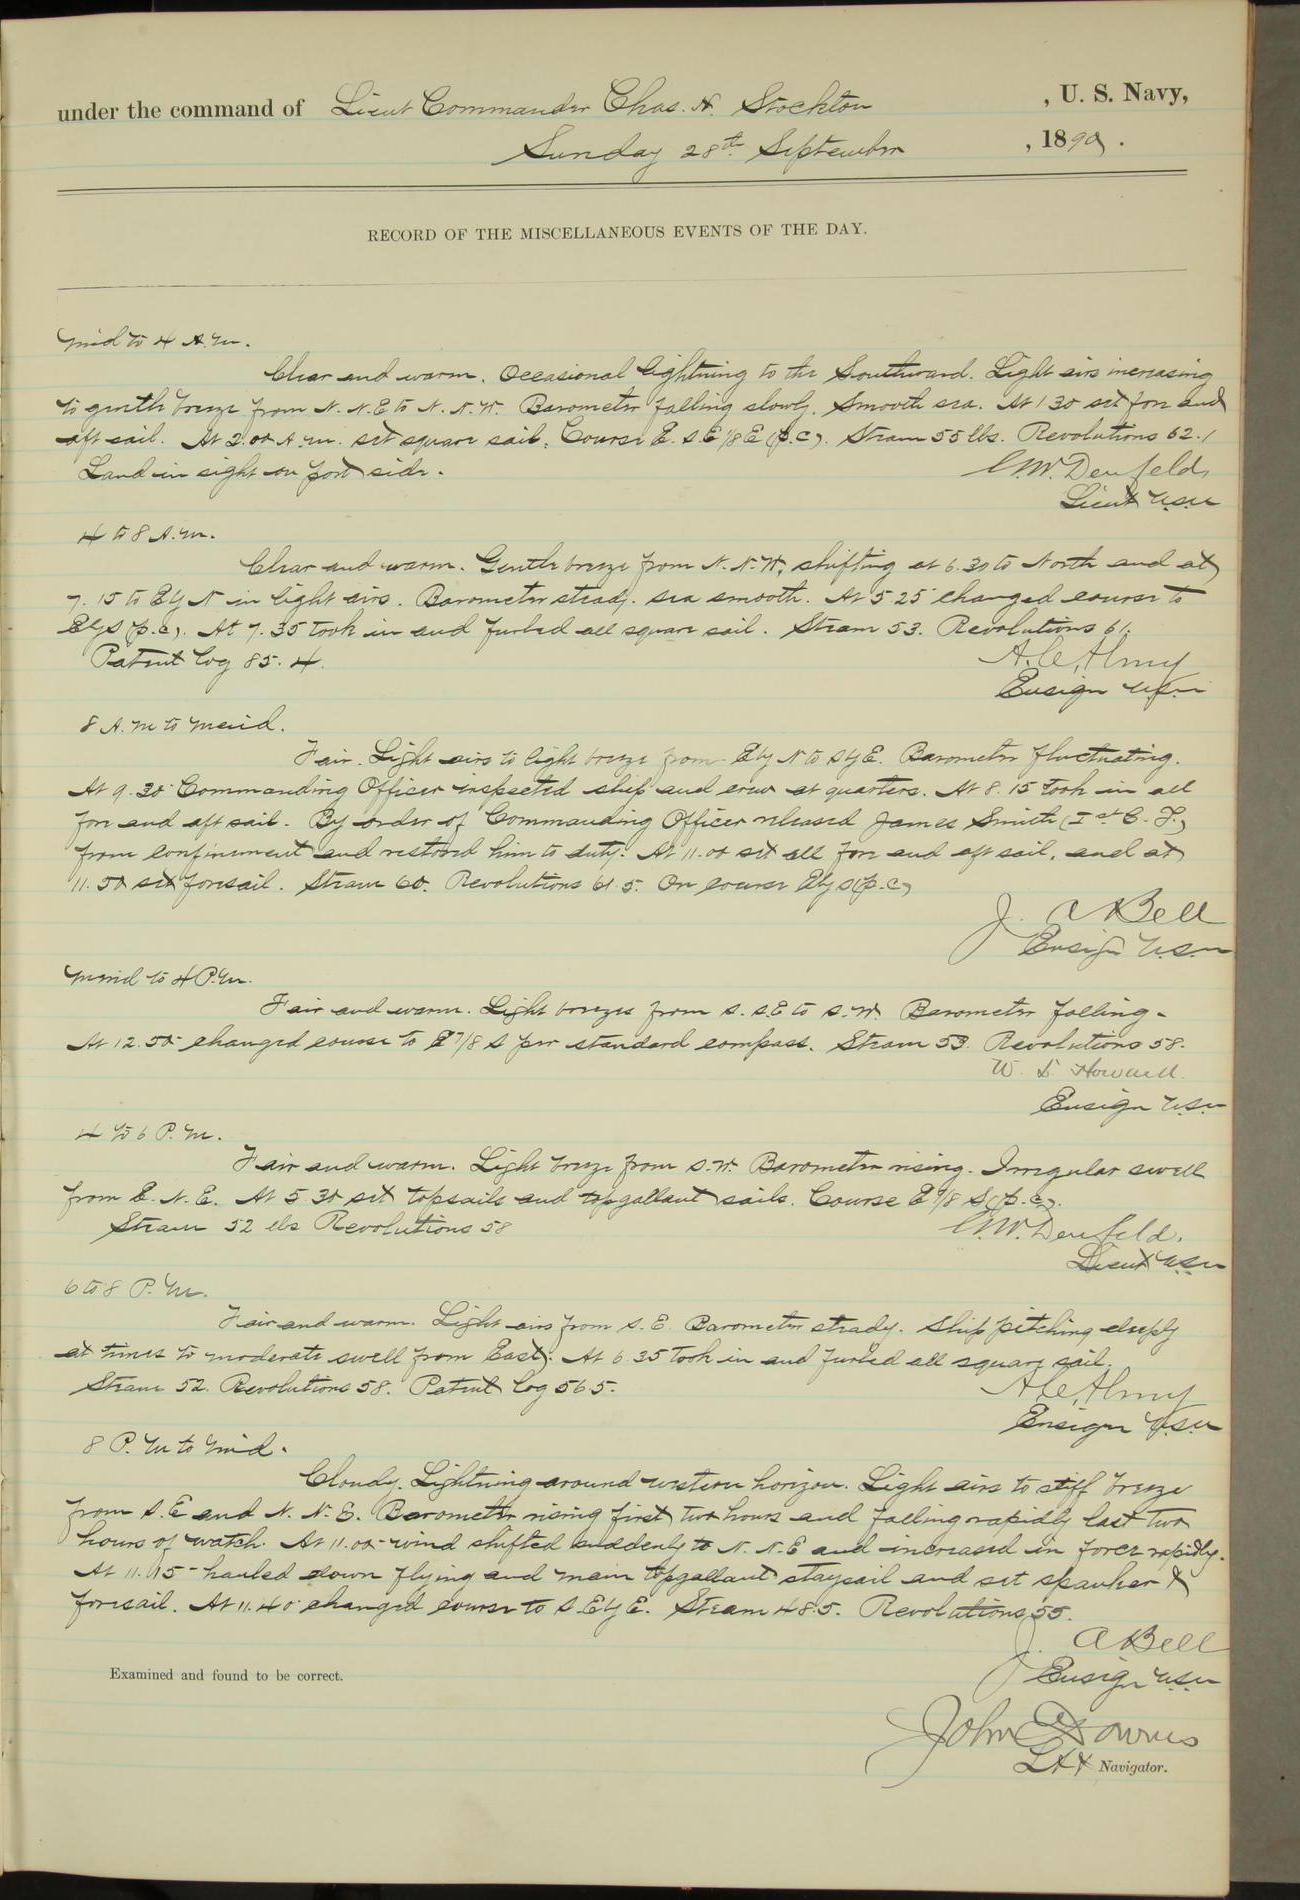 under the command of Lieut Commander Chas. H. Stockton, U. S. Navy,
Sunday 28th September, 1890.
RECORD OF THE MISCELLANEOUS EVENTS OF THE DAY.
Mid to 4 A.M.
Clear and warm. Occasional lightning to the Southward. Light airs increasing
to gentle breeze from N.N.E to N.N.W. Barometer falling slowly. Smooth sea. At 1 30 set fore and
aft sail. At 2.00 A.M. set square sail. Course E.S.E 1/8 E (p.c). Steam 55 lbs. Revolutions 62.1
Land in sight on port side.
C.W. Denfeld,
Lieut USN
4 to 8 A.M.
Clear and warm. Gentle breeze from N.N.W, shifting at 6.30 to North and at
7.15 to E by N in light airs. Barometer steady. Sea smooth. At 5 25 changed course to
E by S (p.c). At 7.35 took in and furled all square sail. Steam 53. Revolutions 61.
Patent log 85.4.
A.C. Almy
Ensign USN
8 A.M to Merid.
Fair. Light airs to light breeze from E by N to S by E. Barometer fluctuating.
At 9.30 Commanding Officer inspected ship and crew at quarters. At 8.15 took in all
fore and aft sail. By order of Commanding Officer released James Smith (1st C. F.)
from confinement and restored him to duty. At 11.00 set all fore and aft sail, and at
11.50 set foresail. Steam 60. Revolutions 61.5. On course E by S (p.c)
J. A Bell
Ensign USN
Merid to 4 P.M.
Fair and warm. Light breezes from S.SE to S.W. Barometer falling.
At 12.50 changed course to E 7/8 S per standard compass. Steam 53. Revolutions 58.
W. L Howard.
Ensign USN
4 to 6 P.M.
Fair and warm. Light breeze from S.W. Barometer rising. Irregular swell
from E.N.E. At 5 30 set topsails and topgallant sails. Course E 7/8 S (p.c).
Steam 52 lbs Revolutions 58
C.W. Denfeld.
Lieut USN
6 to 8 P.M.
Fair and warm. Light airs from S.E. Barometer steady. Ship pitching deeply
at times to moderate swell from East. At 6 35 took in and furled all square sail.
Steam 52. Revolutions 58. Patent log 56 5.
A.C. Almy
Ensign USN
8 P.M to Mid.
Cloudy. Lightning around western horizon. Light airs to stiff breeze
from S.E and N.N.E. Barometer rising first two hours and falling rapidly last two
hours of watch. At 11.00 wind shifted suddenly to N.N.E and increased in force rapidly.
At 11.15 hauled down flying and main topgallant staysail and set spanker &
foresail. At 11.40 changed course to S.E by E. Steam 48.5. Revolutions 55.
J. A Bell
Ensign USN
Examined and found to be correct.
John Downes
Lt Navigator.